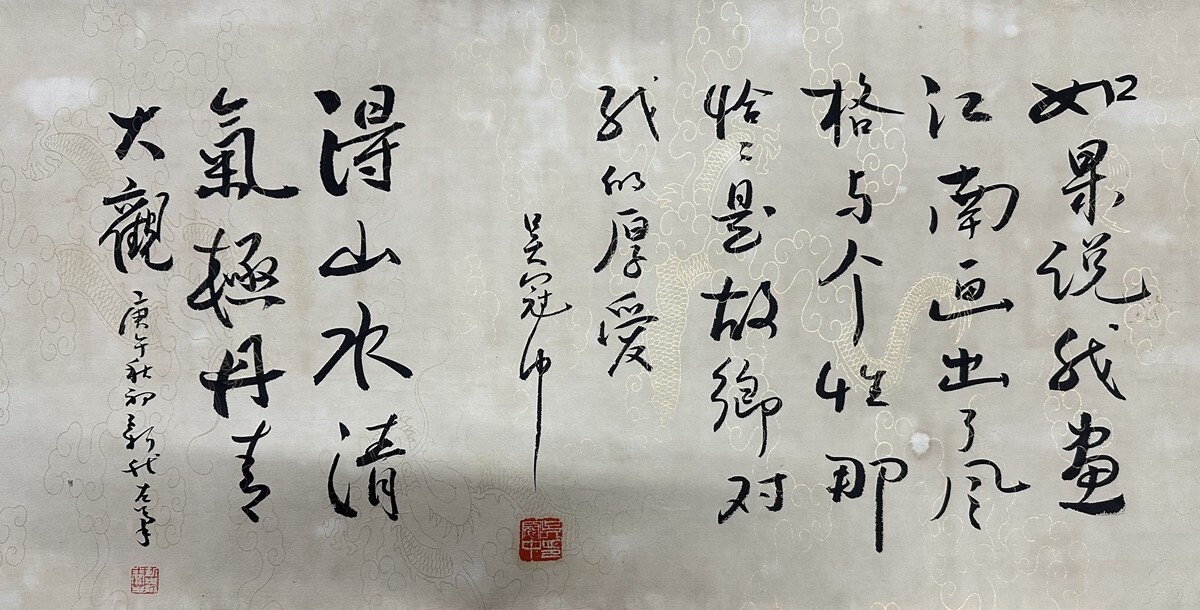 如果说我畫
江南画出了风
格与个性那
恰〻是故鄉对
我的厚爱
吴冠中
得山水清
氣極丹青
大觀 庚午秋初新我左筆